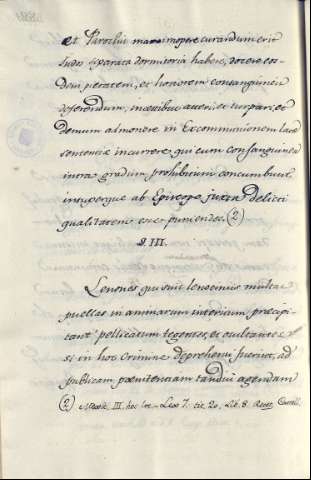 et Parochis maximopere curandum erit
suos separata dormitoria habere, docere eos-
dem peccatum, et honorem consanguineis
deferendum, incestibus atteri, et turpari, et
demum admonere in Excommunionem latae
sententiae incurrere, qui cum consanguinea
intra gradum prohibitum concumbunt
insuperque ab Episcopo juxta delicti
qualitatem esse puniendos. (2)
§. III.
Lenones qui suis lenociniis multas
puellas in animarum interitum praecipi-
tant pellicatum tegentes, et ocultantes
si in hoc Crimine deprehensi fuerint, ad
publicam poenitentiam tandiu agendam
(2) III. hoc Leg. 7. tit. 20, Lib. 8.